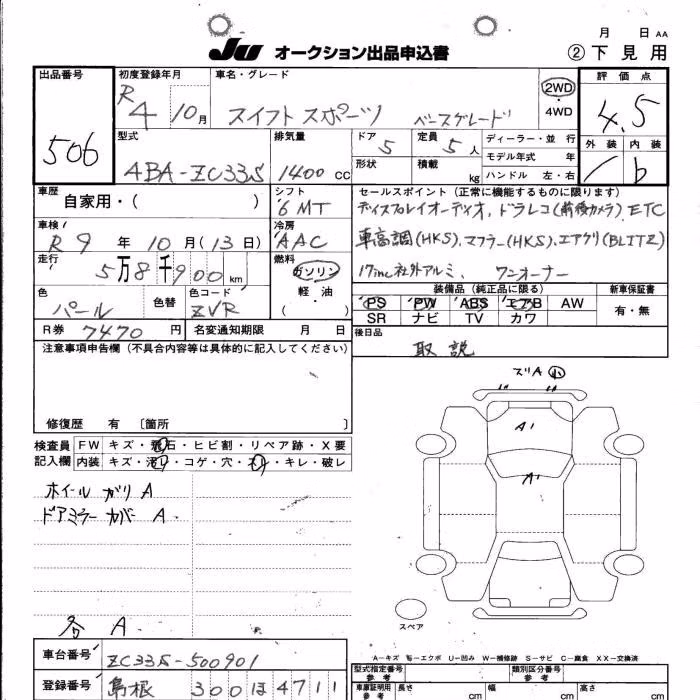 JU オークション出品申込書
月 日 AA
②下見用
出品番号 506
初度登録年月 R4 10月
車名・グレード スイフトスポーツ ベースグレード
2WD・4WD
評価点 4.5
外装 内装 / b
型式 4BA-ZC33S
排気量 1400 cc
ドア 5
形状
定員 5人
積載 kg
ディーラー・並行
モデル年式 年
ハンドル 左・右
車歴 自家用・( )
シフト 6MT
車検 R9年10月(13日)
冷房 AAC
走行 5万8千900km
燃料 ガソリン 軽・油 ( )
色 パール
色替
色コード ZVR
R券 7470円
名変通知期限 月 日
セールスポイント(正常に機能するものに限ります)
ディスプレイオーディオ、ドラレコ(前後カメラ)、ETC
車高調(HKS)、マフラー(HKS)、エアクリ(BLITZ)
17inc社外アルミ、ワンオーナー
装備品(純正品に限る)
新車保証書
PS PW ABS エアB AW
有・無
SR ナビ TV カワ
後日品
取説
注意事項申告欄(不具合内容等は具体的に記入してください)
修復歴 有 〔箇所 〕
検査員記入欄
FW キズ・飛石・ヒビ割・リペア跡・X要
内装 キズ・汚レ・コゲ・穴・スレ・キレ・破レ
ホイール ガリ A
ドアミラー カバー A
各 A
ズリA 小
A1
A1
スペア
A-キズ E-エクボ U-凹み W-補修跡 S-サビ C-腐食 XX-交換済
車台番号 ZC33S-500901
登録番号 島根 300 ほ 4711
型式指定番号 参考
類別区分番号 参考
車庫証明用 参考
長さ cm
幅 cm
高さ cm